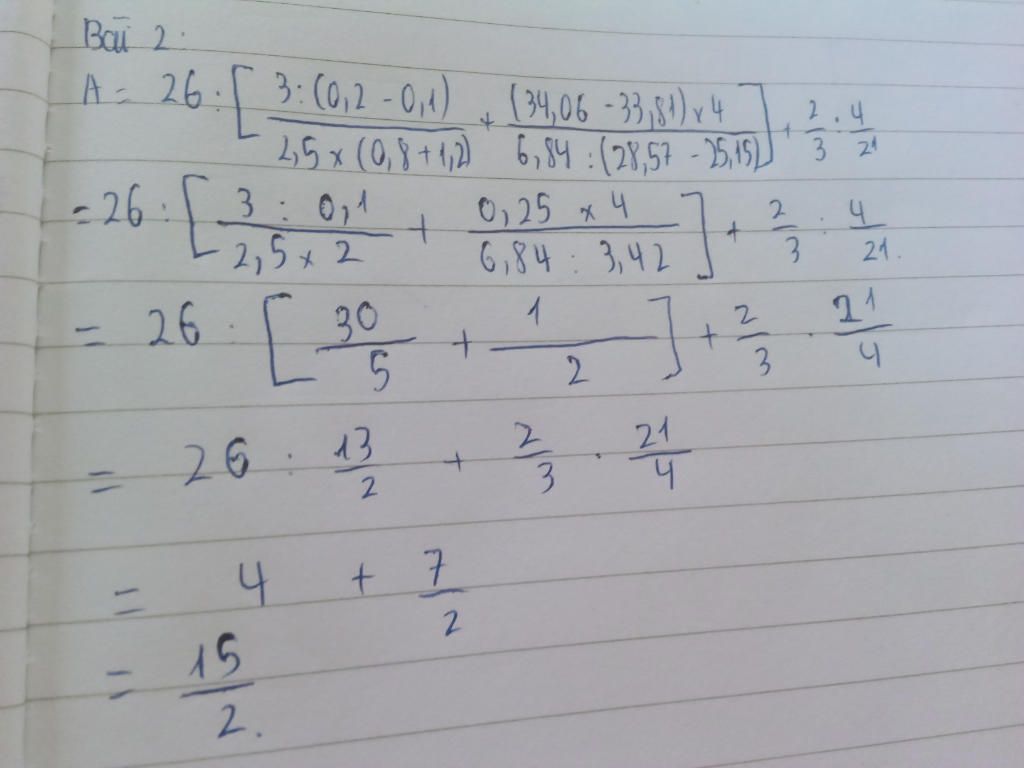 Bài 2:
A = 26 : [ \frac{3 : (0,2 - 0,1)}{2,5 × (0,8 + 1,2)} + \frac{(34,06 - 33,81) × 4}{6,84 : (28,57 - 25,15)} ] + \frac{2}{3} : \frac{4}{21}
= 26 : [ \frac{3 : 0,1}{2,5 × 2} + \frac{0,25 × 4}{6,84 : 3,42} ] + \frac{2}{3} : \frac{4}{21}.
= 26 : [ \frac{30}{5} + \frac{1}{2} ] + \frac{2}{3} . \frac{21}{4}
= 26 : \frac{13}{2} + \frac{2}{3} . \frac{21}{4}
= 4 + \frac{7}{2}
= \frac{15}{2}.